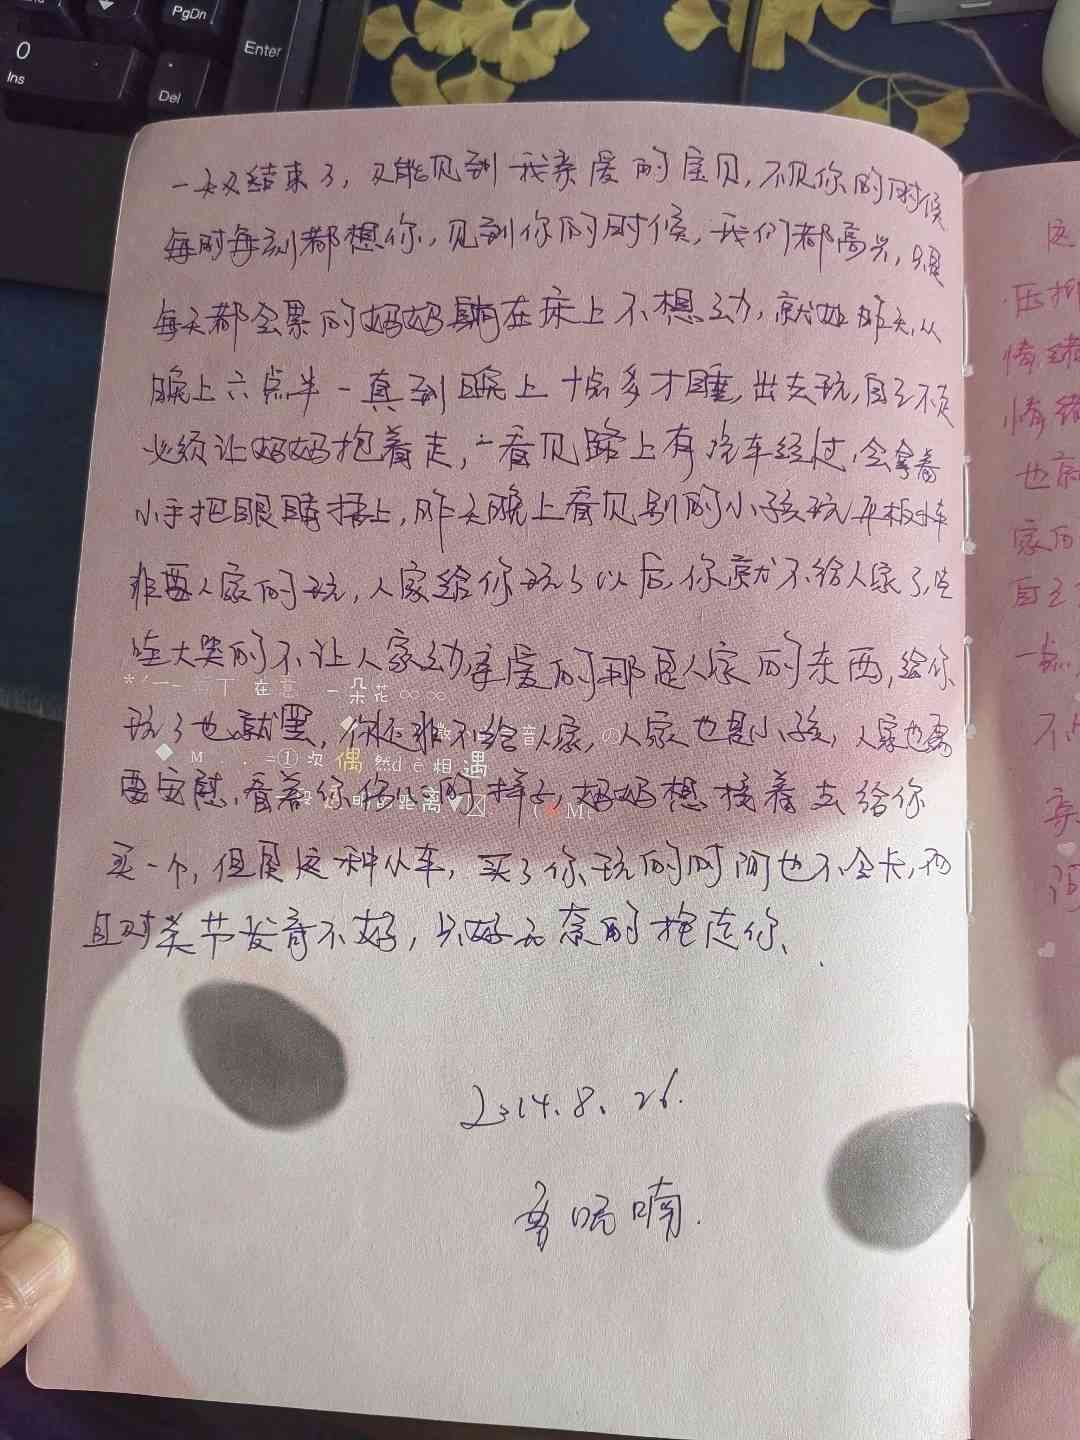 0
Ins
PgDn
Enter
Del
一天又结束了，又能见到我亲爱的宝贝，不见你的时候
每时每刻都想你，见到你的时候，我们都高兴，只是
每天都会累的妈妈躺在床上不想动，就如昨天，从
晚上六点半一直到晚上十点多才睡，出去玩，自己不走
必须让妈妈抱着走，一看见路上有汽车经过，会拿着
小手把眼睛捂上，昨天晚上看见别的小孩玩平板车
非要人家的玩，人家给你玩了以后，你就不给人家了，
哇大哭的不让人家动，亲爱的那是人家的东西，给你
玩了也就罢，你还非不给人家，人家也是小孩，人家也需
要安慰，看着你伤心的样子，妈妈想接着去给你
买一个，但是这种小车，买了你玩的时间也不会长，而
且对关节发育不好，只好无奈的抱走你、
在意 一朵花
次偶然de相遇
的距离
2014.8.26.
喃.